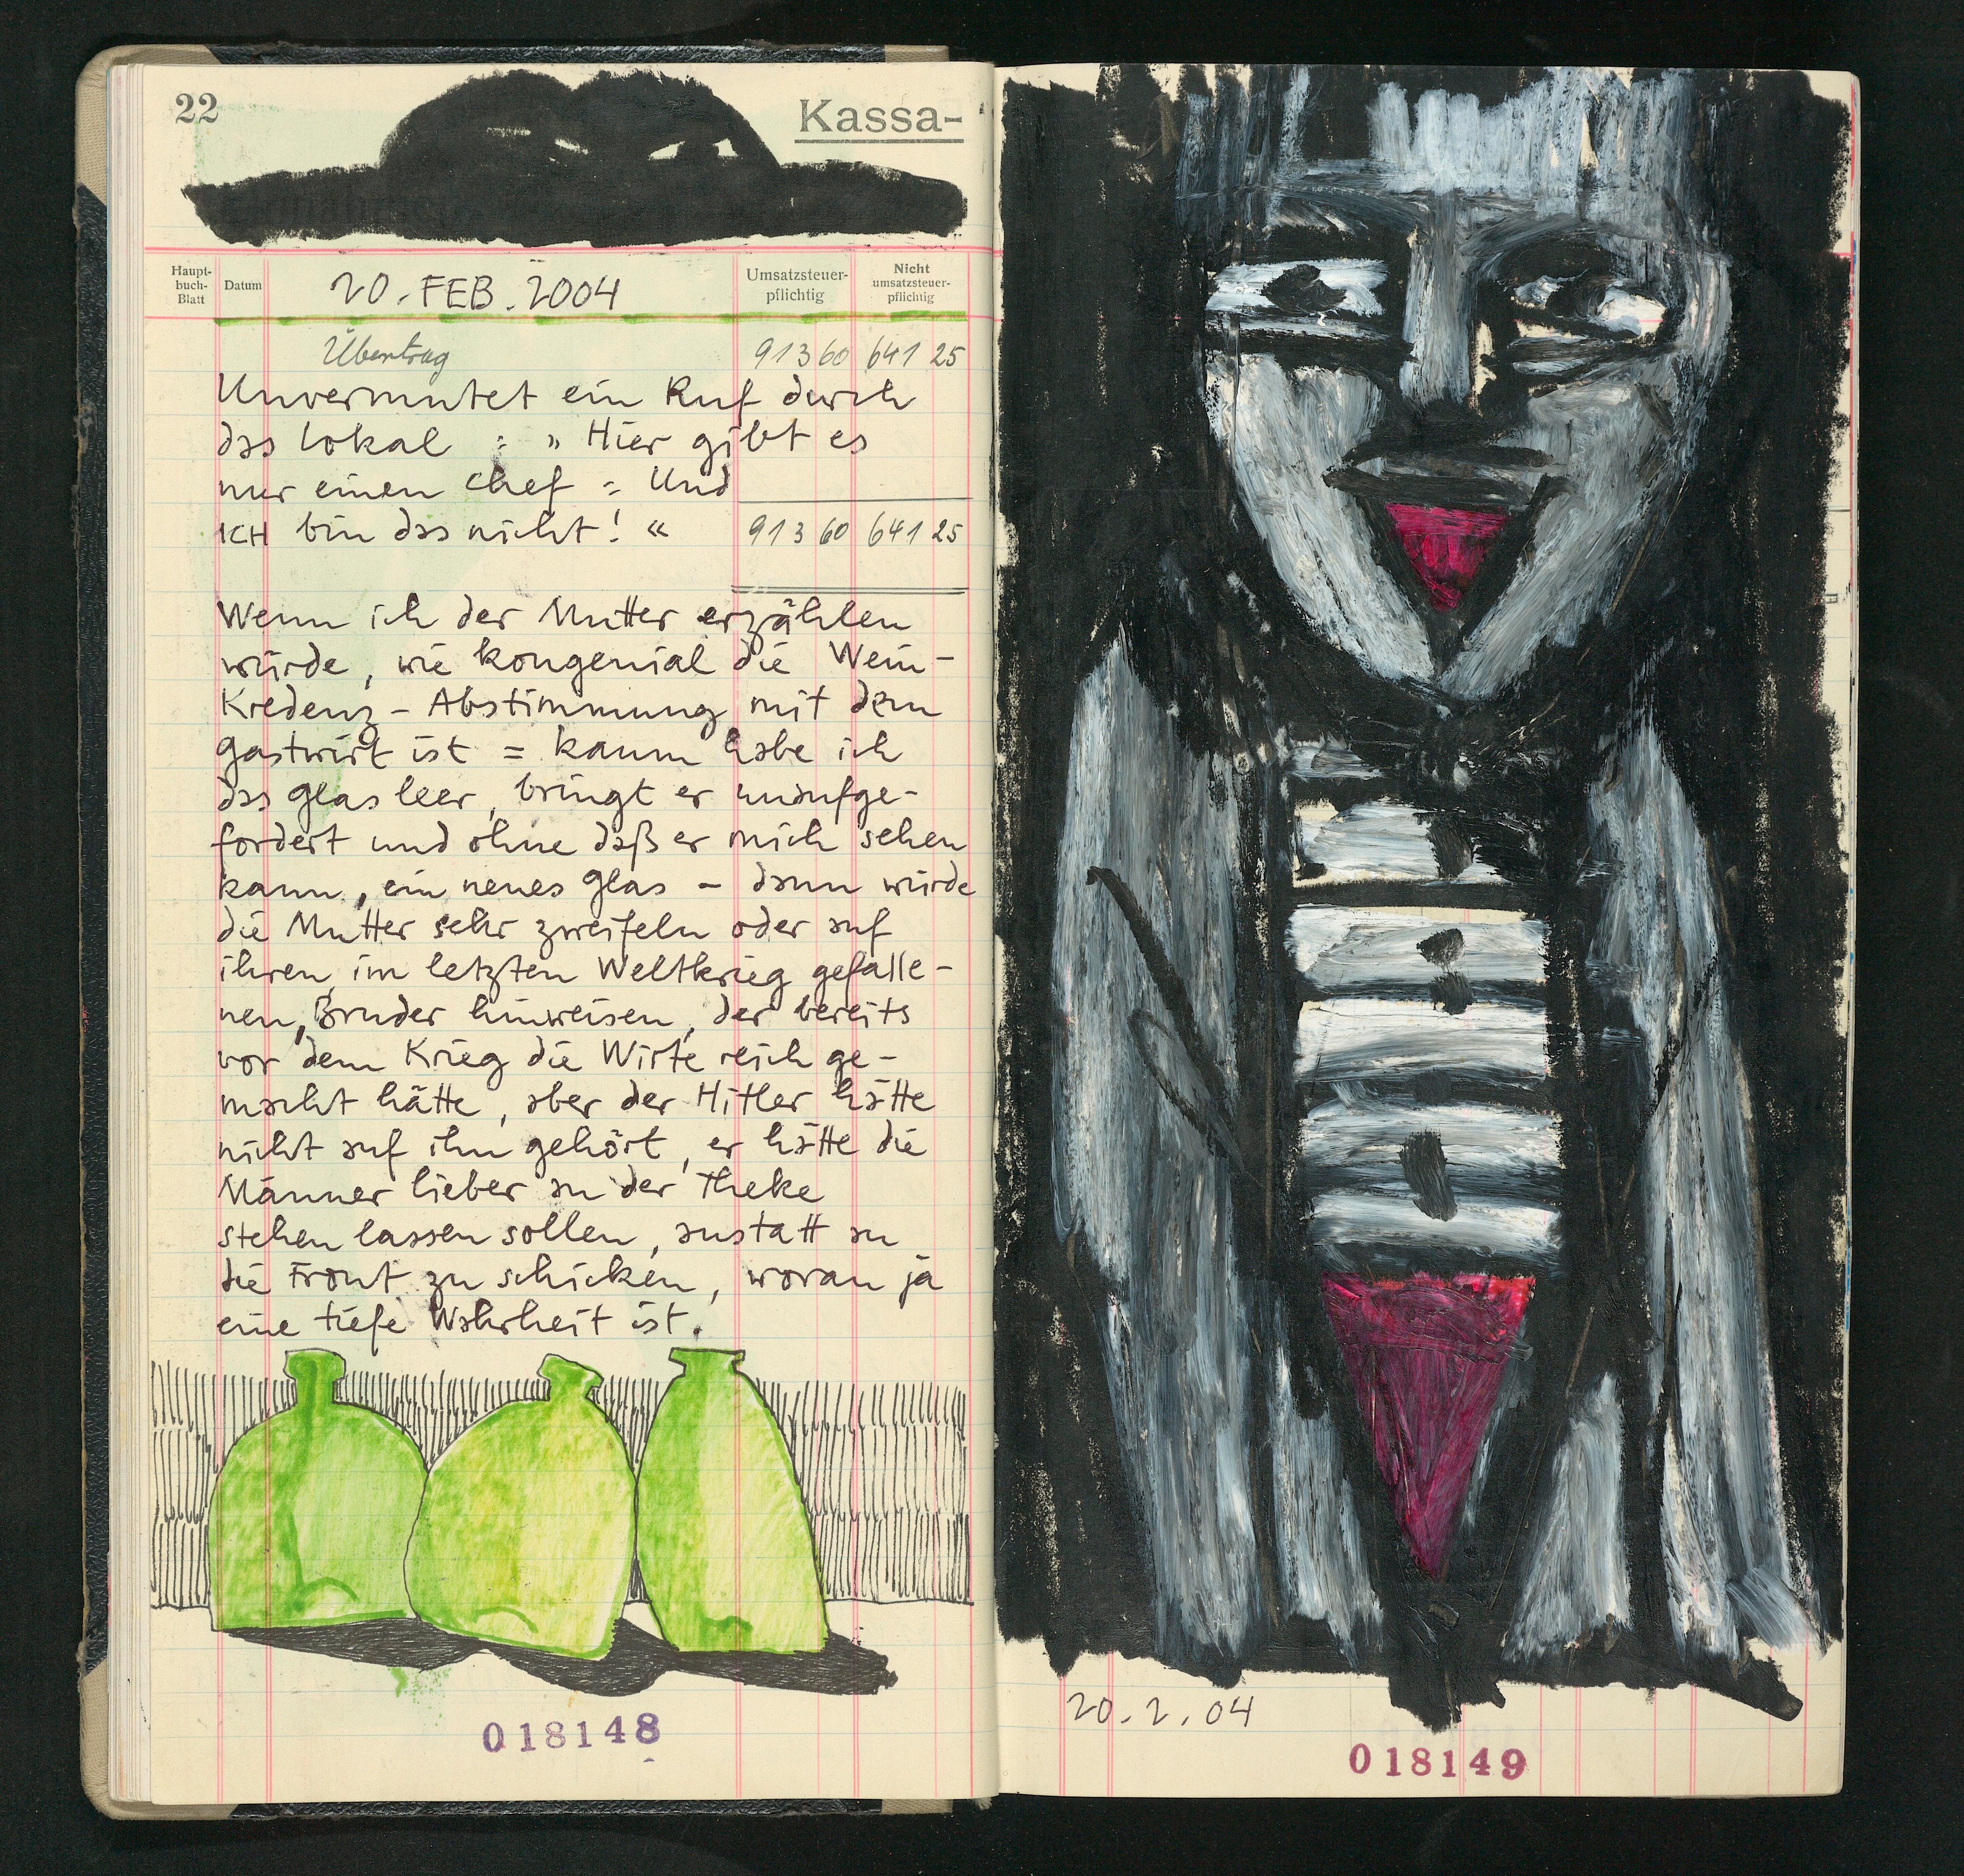 22
Kassa-
Haupt-
buch-
Blatt
Datum
20. FEB. 2004
Umsatzsteuer-
pflichtig
Nicht
umsatzsteuer-
pflichtig
Übertrag 913 60 641 25
Unvermutet ein Ruf durch
das Lokal : » Hier gibt es
nur einen Chef = Und
ICH bin das nicht! «
913 60 641 25
Wenn ich der Mutter erzählen
würde, wie kongenial die Wein-
Kredenz-Abstimmung mit dem
Gastwirt ist = kaum habe ich
das Glas leer, bringt er unaufge-
fordert und ohne daß er mich sehen
kann, ein neues Glas - dann würde
die Mutter sehr zweifeln oder auf
ihren, im letzten Weltkrieg gefalle-
nen, Bruder hinweisen, der bereits
vor dem Krieg die Wirte reich ge-
macht hätte, aber der Hitler hätte
nicht auf ihn gehört, er hätte die
Männer lieber an der Theke
stehen lassen sollen, anstatt an
die Front zu schicken, woran ja
eine tiefe Wahrheit ist.
018148
20.2.04
018149